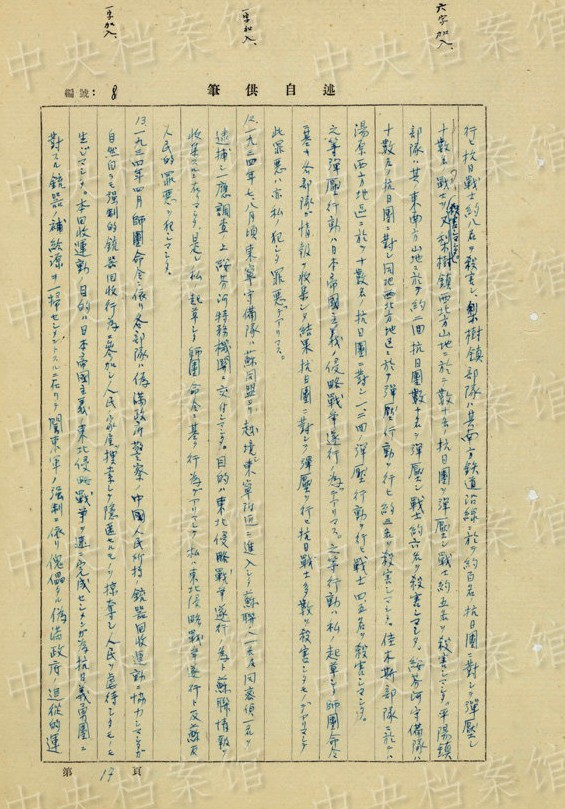 六字加入、
一字加入、
一字加入、
述自供筆
編號：8
行ヒ抗日戰士約八名ヲ殺害シ梨樹鎮部隊ハ其南方鉄道沿線ニ於テ約百名抗日團ニ對シテ彈壓シ
十數名ノ戰士ヲ殺害シ又梨樹鎮西北方山地ニ於テ二數十名ノ抗日團ヲ彈壓シ戰士約五名ヲ殺害シマシタ。平陽鎮
部隊ハ其東南方山地ニ於テ約二回抗日團數十名ヲ彈壓シ戰士約六名ヲ殺害シマシタ、綏芬河守備隊ハ
十數名ノ抗日團ニ對シ同地西北方地區ニ於テ彈壓行動ヲ行ヒ約三名ヲ殺害シマシタ。佳木斯部隊ニ於テハ
湯原西方地區ニ於テ十數名ノ抗日團ニ對シ一、二回彈壓行動ヲ行ヒ戰士四五名ヲ殺害シマシタ。
之等彈壓行動ハ日本帝國主義ノ侵略戰爭遂行ノ為デアリマス。之等行動ハ私ノ起草シタ師團命令ニ
基キ各部隊ガ情報ヲ收集シタ結果抗日團ニ對シテ彈壓ヲ行ヒ抗日戰士多數ヲ殺害シタモノデアリマシテ
此罪惡ハ亦私ノ犯シタ罪惡デアリマス。
12、一九三四年七八月頃東寧守備隊ハ蘇同盟ヨリ越境シ東寧附近ニ進入シタ蘇聯人一名同衣偵一名ヲ
逮捕シ一應調査ノ上綏芬河特務機關ニ交付シマシタ。目的ハ東北侵略戰爭遂行ノ為メ蘇聯情報ヲ
收集スルニ在リマシタ。是レ私ノ起草シタ師團命令ニ基ク行為デアリマシテ私ハ東北侵略戰爭遂行ト反蘇反
人民的罪惡ヲ犯シマシタ。
13、一九三四年四月師團命令ニ依リ各部隊ハ偽滿政府警察ノ中國人民所持ノ銃器回收運動ニ協力シマシタガ
自然自ラモ強制的銃器回收行為ニ參加シ人民ノ家屋搜索シテ隱匿セルモノヲ掠奪シ人民ヲ虐待シタモノモ
生ジマシタ。本回收運動ノ目的ハ日本帝國主義ノ東北侵略戰爭ヲ速ニ完成センガ為抗日義勇團ニ
對スル銃器ノ補給源ヲ一掃センントスルニ在リマシテ關東軍ノ強制ニ依リ傀儡タル偽滿政府ノ追從的運
第 17 頁
中央档案馆